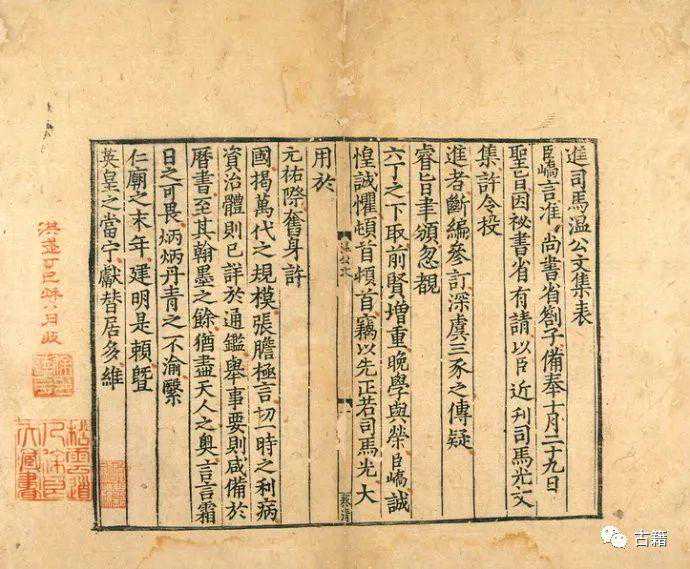 進司馬温公文集表
臣嶠言准尚書省劄子備奉十月二十九日
聖旨因祕書省有請以臣近刋司馬光文
集許令投
進者斷編參訂深虞三豕之傳疑
睿旨聿頒忽覩
六丁之下取前賢増重晚學與榮臣嶠誠
惶誠懼頓首頓首竊以先正若司馬光大
用於
元祐際奮身許
國揭萬代之規模張膽極言切一時之利病
資治體則已詳於通鑑舉事要則咸備於
曆書至其翰墨之餘猶盡天人之奥言言霜
日之可畏炳炳丹青之不渝繄
仁廟之末年建明是頼曁
英皇之當宁獻替居多維
洪武丁巳秋八月收
古籍